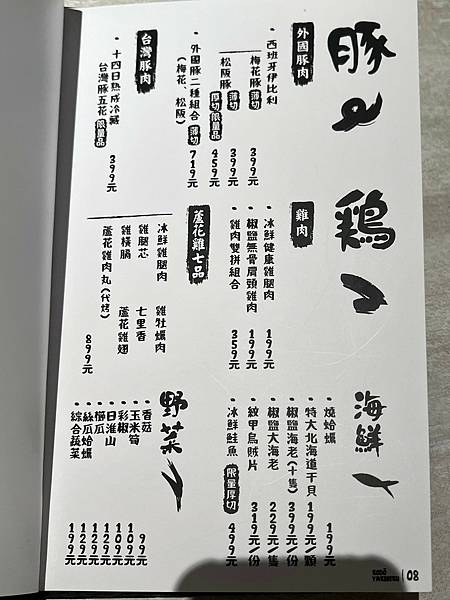 豚
外國豚肉
• 西班牙伊比利
梅花豚 薄切 399元
松阪豚 薄切 399元
厚切限量品 459元
• 外國豚二種組合 薄切 719元
(梅花、松阪)
台灣豚肉
• 十四日熟成冷藏
台灣豚五花 限量品 399元
鶏
雞肉
• 冰鮮健康雞腿肉 199元
• 椒鹽無骨肩頸雞肉 199元
• 雞肉雙拼組合 359元
蘆花雞七品
冰鮮雞腿肉 雞牡蠣肉
雞腿芯 七里香
雞橫膈 蘆花雞翅
蘆花雞肉丸(代烤)
899元
海鮮
• 燒蛤蠣 199元
• 特大北海道干貝 199元/顆
• 椒鹽海老(十隻) 399元/份
• 椒鹽大海老 229元/隻
• 紋甲烏賊片 319元/份
• 冰鮮鮭魚 限量厚切 499元
野菜
• 香菇 99元
• 玉米筍 109元
• 彩椒 109元
• 日淮山 129元
• 櫛瓜 129元
• 絲瓜蛤蠣 199元
• 綜合蔬菜 199元
KODŌ
YAKINIKU
08